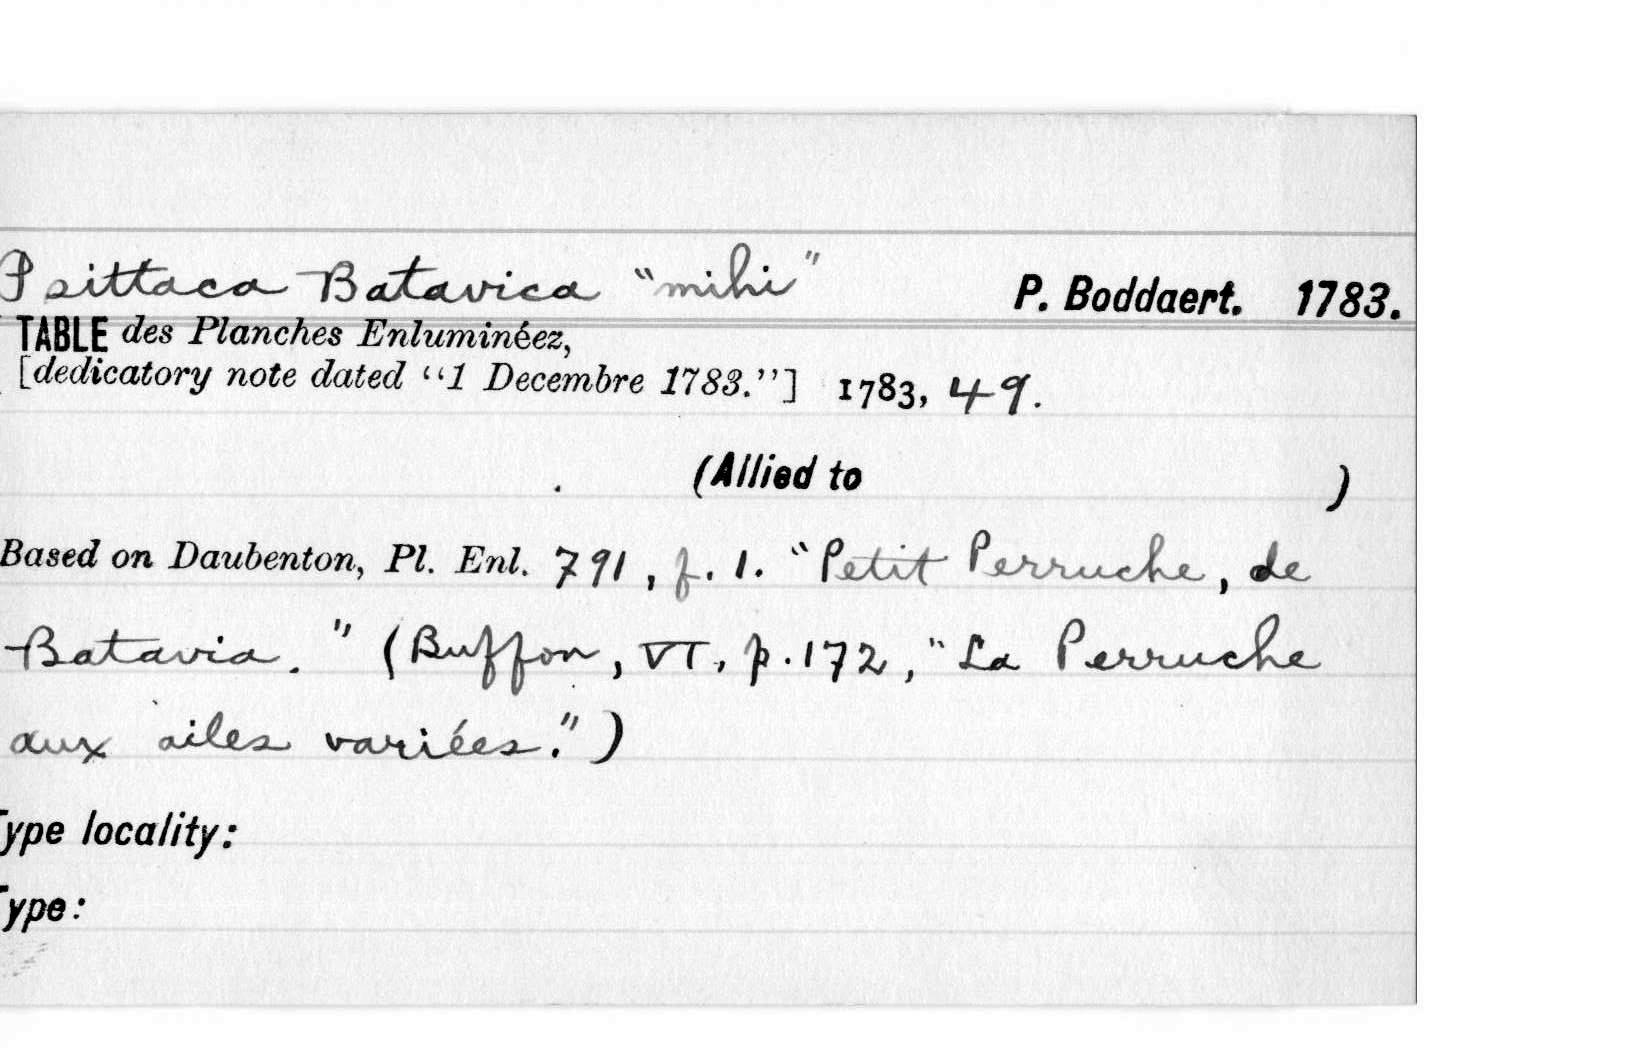 Psittaca Batavica "mihi" P. Boddaert. 1783.
TABLE des Planches Enluminéez,
[dedicatory note dated "1 Decembre 1783."] 1783, 49.
(Allied to )
Based on Daubenton, Pl. Enl. 791, f. 1. "Petit Perruche, de
Batavia." (Buffon, VI, p. 172, "La Perruche
aux ailes variées.")
Type locality:
Type: